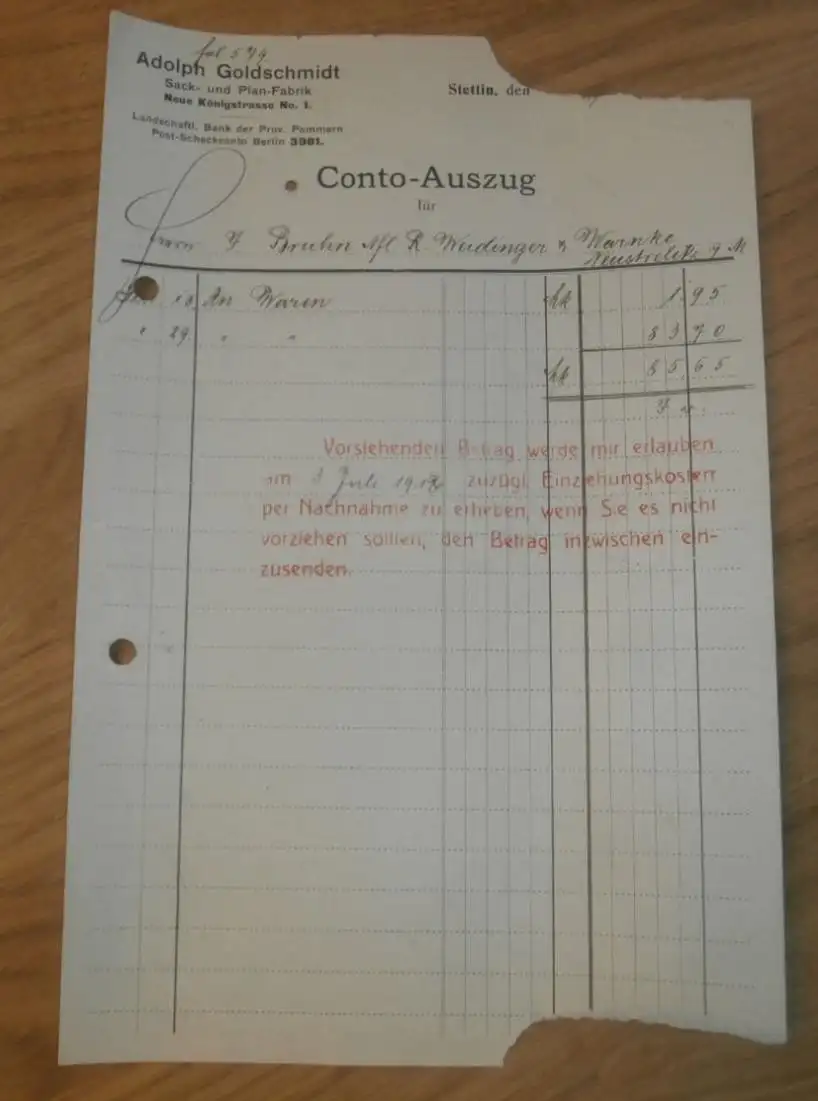 fol 579
Adolph Goldschmidt
Sack- und Plan-Fabrik
Neue Königstrasse No. 1.
Landschaftl. Bank der Prov. Pommern
Post-Scheckconto Berlin 3981.
Stettin, den
Conto-Auszug
für
Herrn J Bruhn Nfl R Weidinger & Warnke
Neustrelitz
10 An Waren 1 95
" 29 " " 83 70
85 65
Vorstehenden Betrag werde mir erlauben
am 3 Juli 191 zuzügl. Einziehungskosten
per Nachnahme zu erheben, wenn Sie es nicht
vorziehen sollten, den Betrag inzwischen ein-
zusenden.